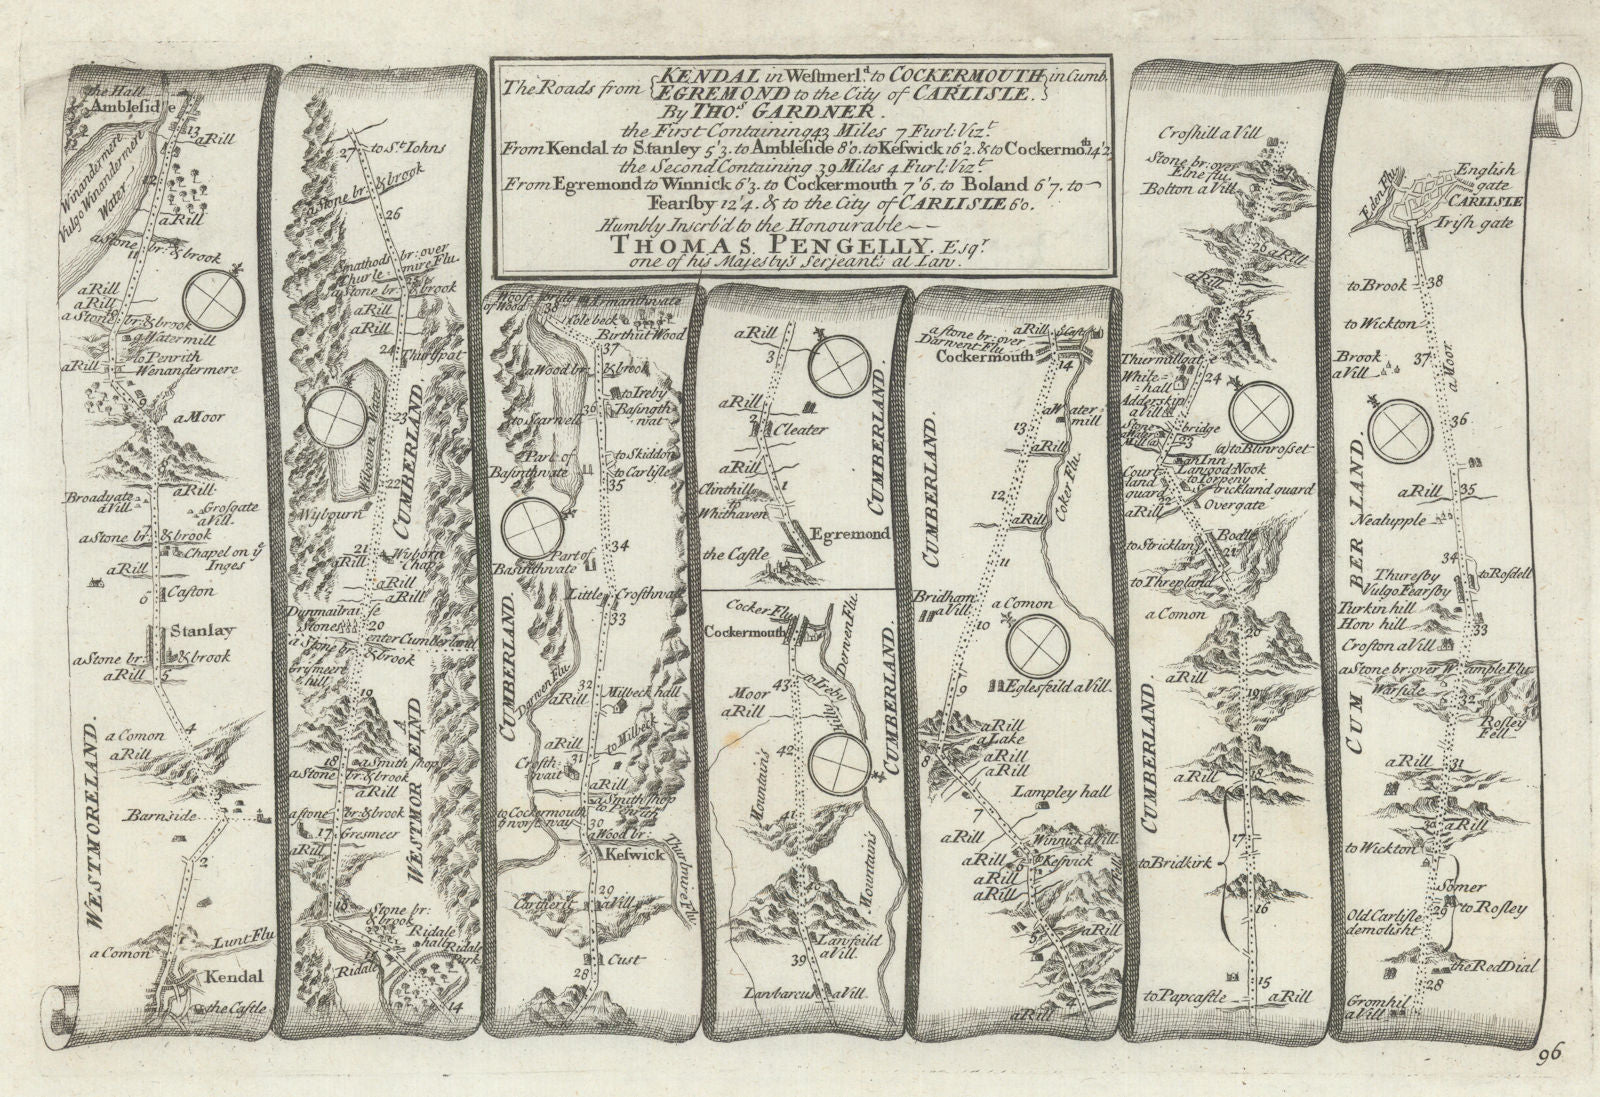 The Roads from { KENDAL in Westmerl.d to COCKERMOUTH in Cumb.
EGREMOND to the City of CARLISLE. }
By THO.s GARDNER.
the First Containing 43 Miles 7 Furl: Viz.t
From Kendal to Stanley 5'3. to Ambleside 8'0. to Keswick 16'2. & to Cockermo.th 14'2
the Second Containing 39 Miles 4 Furl: Viz.t
From Egremond to Winnick 6'3. to Cockermouth 7'6. to Boland 6'7. to
Fearsby 12'4. & to the City of CARLISLE 6'0.
Humbly Inscrb'd to the Honourable
THOMAS PENGELLY. Esq.r
one of his Majesty's Serjeants at Law.
the Hall
Ambleside
13
a Rill
Winandermere
Vulgo Winandermere
Water
12
a Rill
a Stone br: & brook
11
a Rill
a Rill
a Stone br: & brook
a Watermill
to Penrith
a Rill
Wenandermere
9
a Moor
8
a Rill
Broadgate
a Vill.
Grosgate
a Vill.
7
a Stone br: & brook
Chapel on ye
Inges
a Rill
6
Caston
Stanlay
a Stone br: & brook
a Rill
5
4
a Comon
a Rill
WESTMORELAND.
Barnside
2
1
a Comon
Lunt Flu
Kendal
the Castle
27
to St Iohns
a Stone br: & brook
26
Smathods br: over
Thurlemire Flu
a Stone br: & brook
a Rill
a Rill
24
Thurspat
CUMBERLAND.
23
Wiborn Water
22
Wybourn
21
a Rill
Wyborn
Chap
a Rill
a Rill
Dunmailraise
Stones
20
enter Cumberland
a Stone br: & brook
Grysmeer
hill
19
A
WESTMORELND
18
a Smith shop
a Stone br: & brook
a Rill
a stone br: & brook
17
Gresmeer
a Rill
16
Stone br:
& brook
Ridale
hall
Ridale
Park
15
Ridale
14
38
Armanthwate
Cole beck
Birthut Wood
37
a Wood br: & brook
to Ireby
36
Basingth
wat
to Scarwell
Part of
Basinthwate
to Skiddon
to Carlisle
35
34
Part of
Basinthwate
Little Crosthwat
33
CUMBERLAND.
Darwen Flu
32
a Rill
Milbeck hall
to Milbeck
a Rill
31
Crosth-
wait
a Rill
a Smith shop
to Penrith
to Cockermouth
30
a Wood br:
Keswick
Thurlmire Flu
29
a Vill.
28
Cust
a Rill
3
a Rill
2
Cleater
CUMBERLAND.
a Rill
1
Clinthill
to
Whithaven
Egremond
the Castle
Cocker Flu
Cockermouth
Derven Flu
43
to Ireby
Moor
a Rill
42
CUMBERLAND.
Mountains
41
40
Mountains
39
Lawseild
a Vill.
Lanbarcus a Vill.
a stone br: over
Darwent Flu
a Rill
a Castle
Cockermouth
14
a Water
mill
13
a Rill
12
Coker Flu.
a Rill
CUMBERLAND.
11
Bridham
a Vill
10
a Comon
9
Eglesfeild a Vill.
a Rill
a Lake
a Rill
8
a Rill
Lampley hall
7
a Rill
Winnick a Vill.
a Rill
6
Keswick
a Rill
a Rill
5
a Rill
4
a Rill
Croshill a Vill
Stone br: over
Elne flu
Bolton a Vill.
26
a Rill
a Rill
25
Thurmillgate
24
White-
hall
Adderskip
a Vill
Stone bridge
23
to Blunroset
an Inn
Langod Nook
to Torpeny
Court
land
guard
Strickland guard
22
Overgate
a Rill
to Stricklan
Bodle
21
to Threpland
a Comon
20
a Rill
19
CUMBERLAND.
18
a Rill
17
to Bridkirk
16
15
to Papcastle
a Rill
Eden Flu
English
gate
CARLISLE
Irish gate
38
to Brook
to Wickton
37
Brook
a Vill
a Moor
36
CUMBERLAND.
a Rill
35
Nealupple
34
Thuresby
Vulgo Fearsby
to Rosdell
Turkin hill
How hill
33
Crofton a Vill
a Stone br: over Wample Flu
Warside
32
Rosley
Fell
a Rill
31
30
a Rill
to Wickton
Somer
to Rosley
Old Carlisle
demolisht
29
the Red Dial
28
Gromhil
a Vill
96